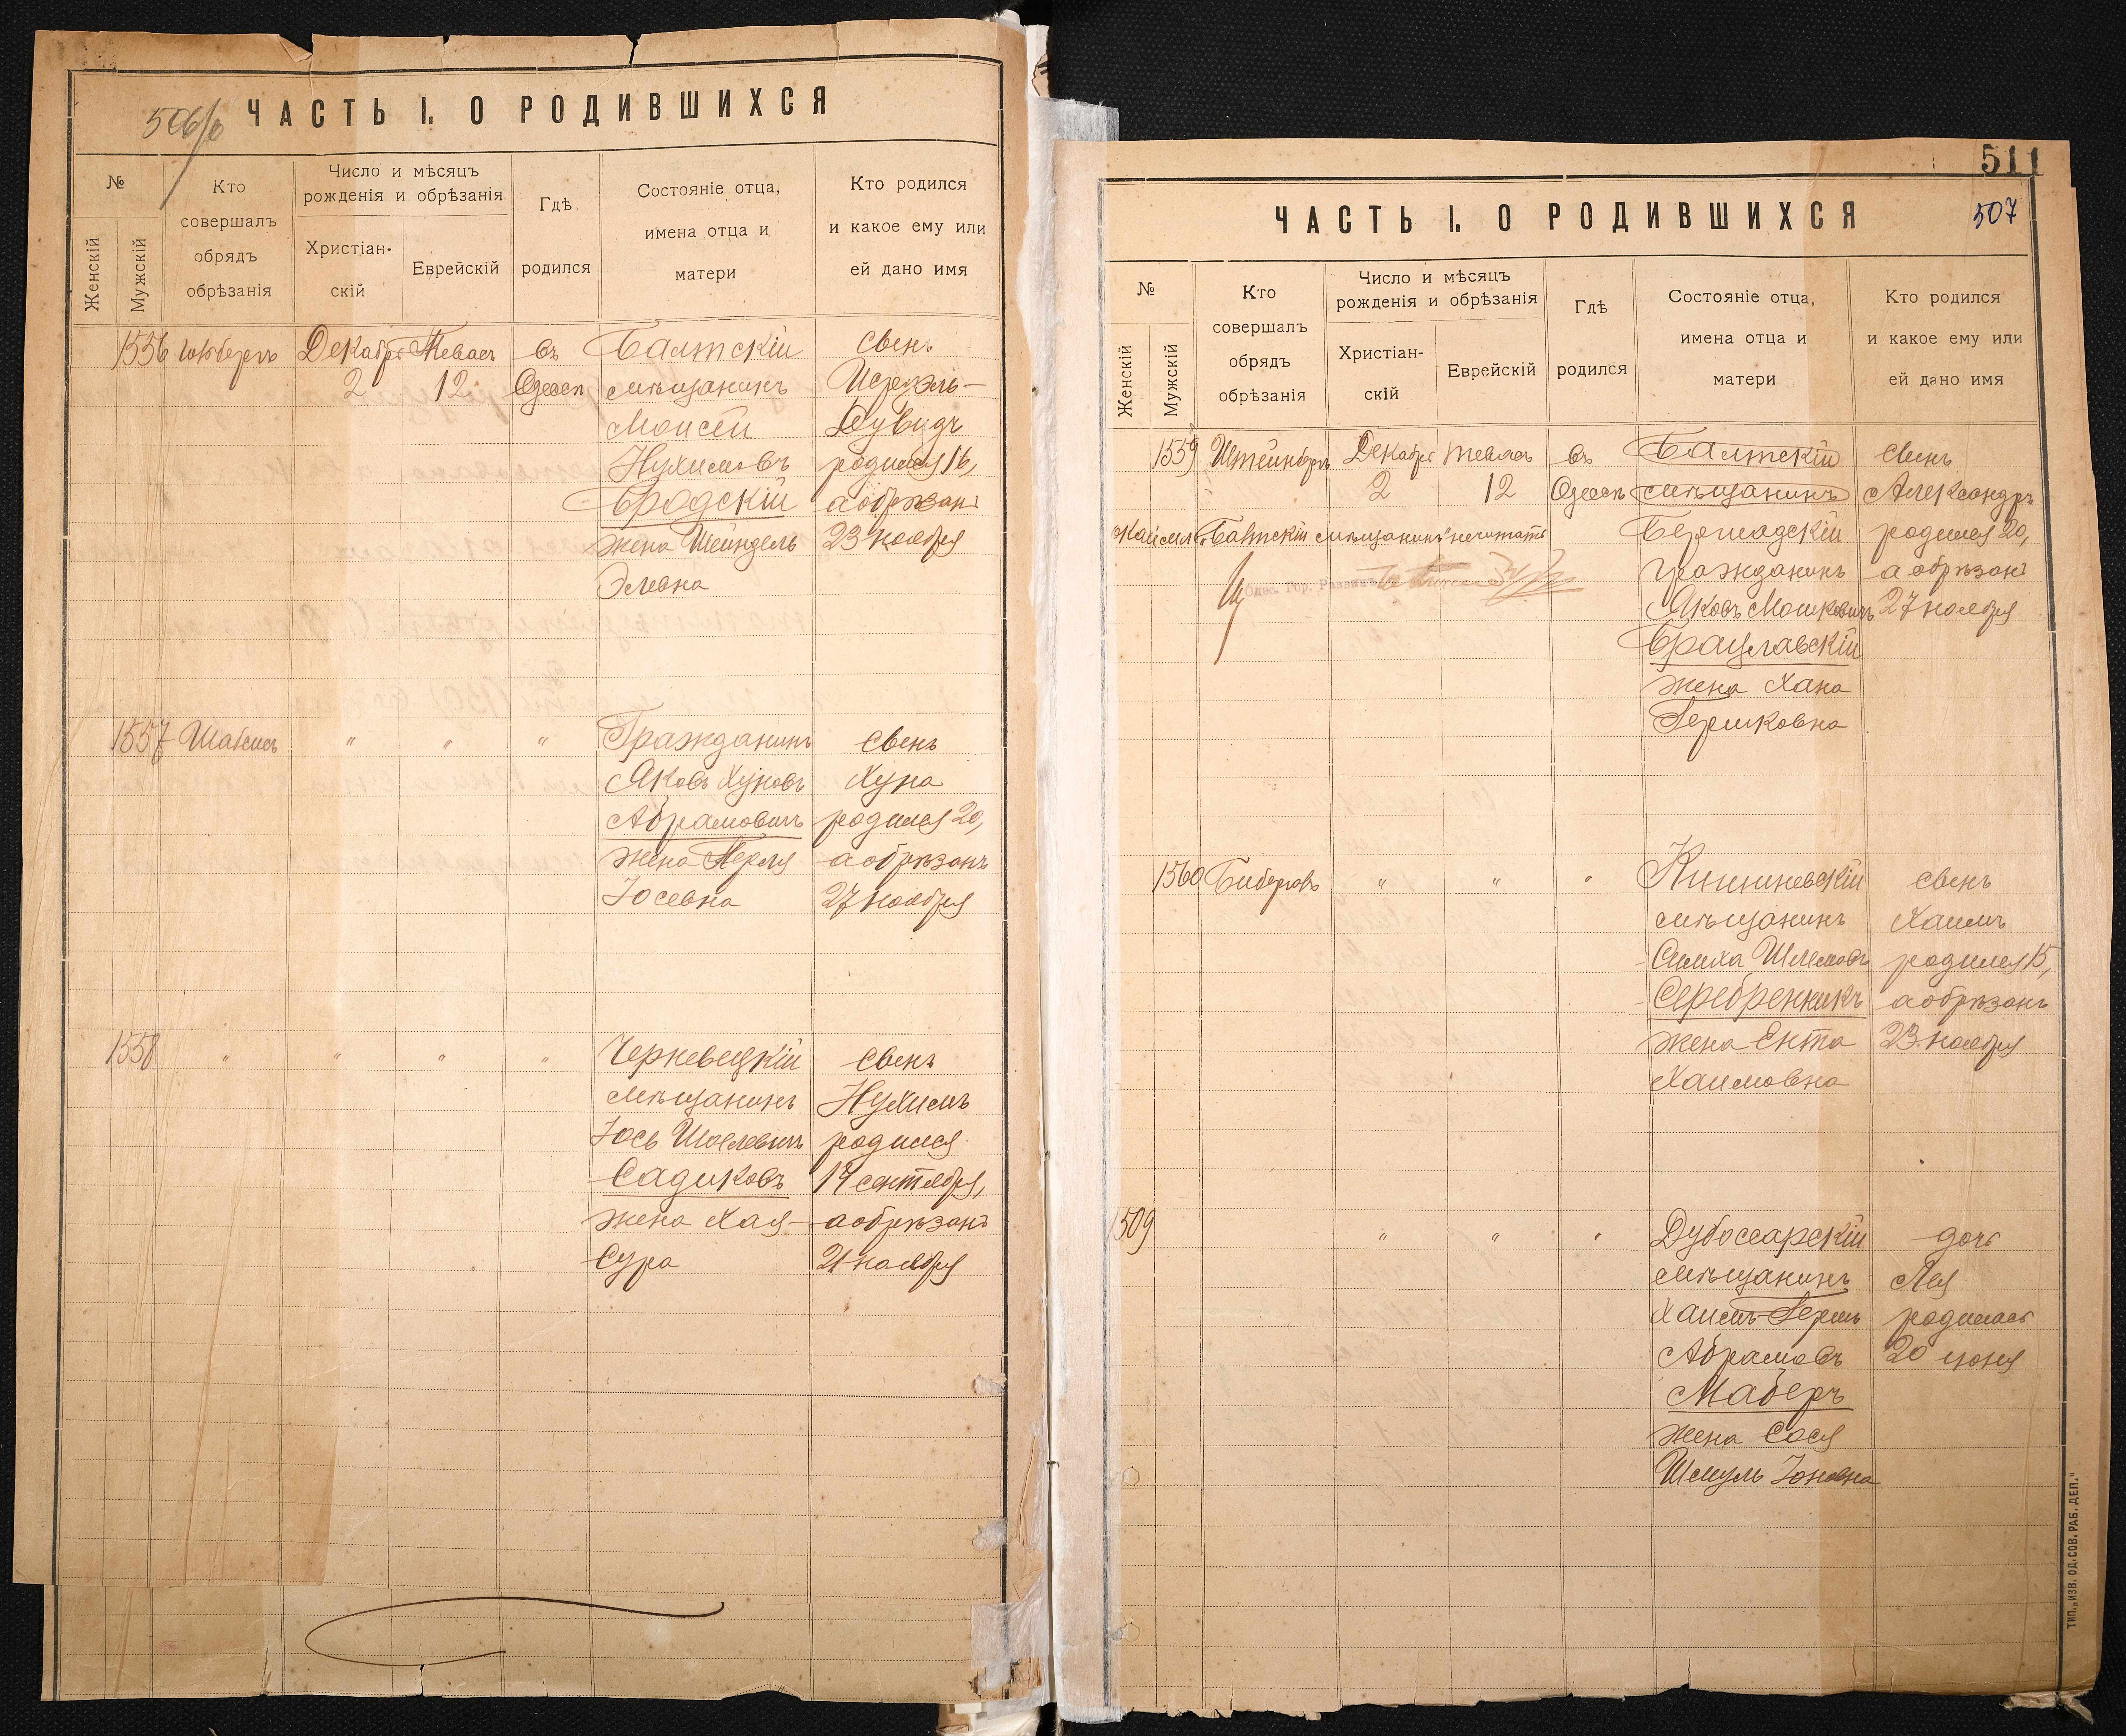 506/об
ЧАСТЬ I. О РОДИВШИХСЯ
№
Женскій
Мужскій
Кто
совершалъ
обрядъ
обрѣзанія
Число и мѣсяцъ
рожденія и обрѣзанія
Христіан-
скій
Еврейскій
Гдѣ
родился
Состояніе отца,
имена отца и
матери
Кто родился
и какое ему или
ей дано имя
1556
Декабрь Тевасъ въ Балтскій Сынъ
2 12 Одессѣ мѣщанинъ Исраэль-
Моисей Дувидъ
Нухимовъ родился 16,
Бродскій а обрѣзанъ
жена Шейндель 23 ноября
Элевна
1557 Шабсисъ " " " Гражданинъ Сынъ
Яковъ Хуновъ Хуна
Абрамовичъ родился 20,
жена Перля а обрѣзанъ
Іосевна 27 ноября
1558 " " " " Черневецкій Сынъ
мѣщанинъ Нухимъ
Іось Шоелевичъ родился
Садиковъ 14 сентября,
жена Хая- а обрѣзанъ
Сура 21 ноября
511
507
ЧАСТЬ I. О РОДИВШИХСЯ
№
Женскій
Мужскій
Кто
совершалъ
обрядъ
обрѣзанія
Число и мѣсяцъ
рожденія и обрѣзанія
Христіан-
скій
Еврейскій
Гдѣ
родился
Состояніе отца,
имена отца и
матери
Кто родился
и какое ему или
ей дано имя
1559 Штейнбергъ Декабрь Тевасъ въ Балтскій Сынъ
2 12 Одессѣ мѣщанинъ Александръ
"Балтскій мѣщанинъ" не читать
Бершадскій родился 20,
гражданинъ а обрѣзанъ
Яковъ Мошковичъ 27 ноября
Брацлавскій
жена Хана
Гершковна
1560 Биберовъ " " " Кишиневскій Сынъ
мѣщанинъ Хаимъ
Симха Шлемовъ родился 15,
Серебренникъ а обрѣзанъ
жена Ента 23 ноября
Хаимовна
1509 " " " Дубоссарскій дочь
мѣщанинъ Лея
Хаимъ-Гершъ родилась
Абрамовъ 20 июня
Маберъ
жена Сося
Шмуль Іоновна
ТИП. „ИЗВ. ОД. СОВ. РАБ. ДЕП."